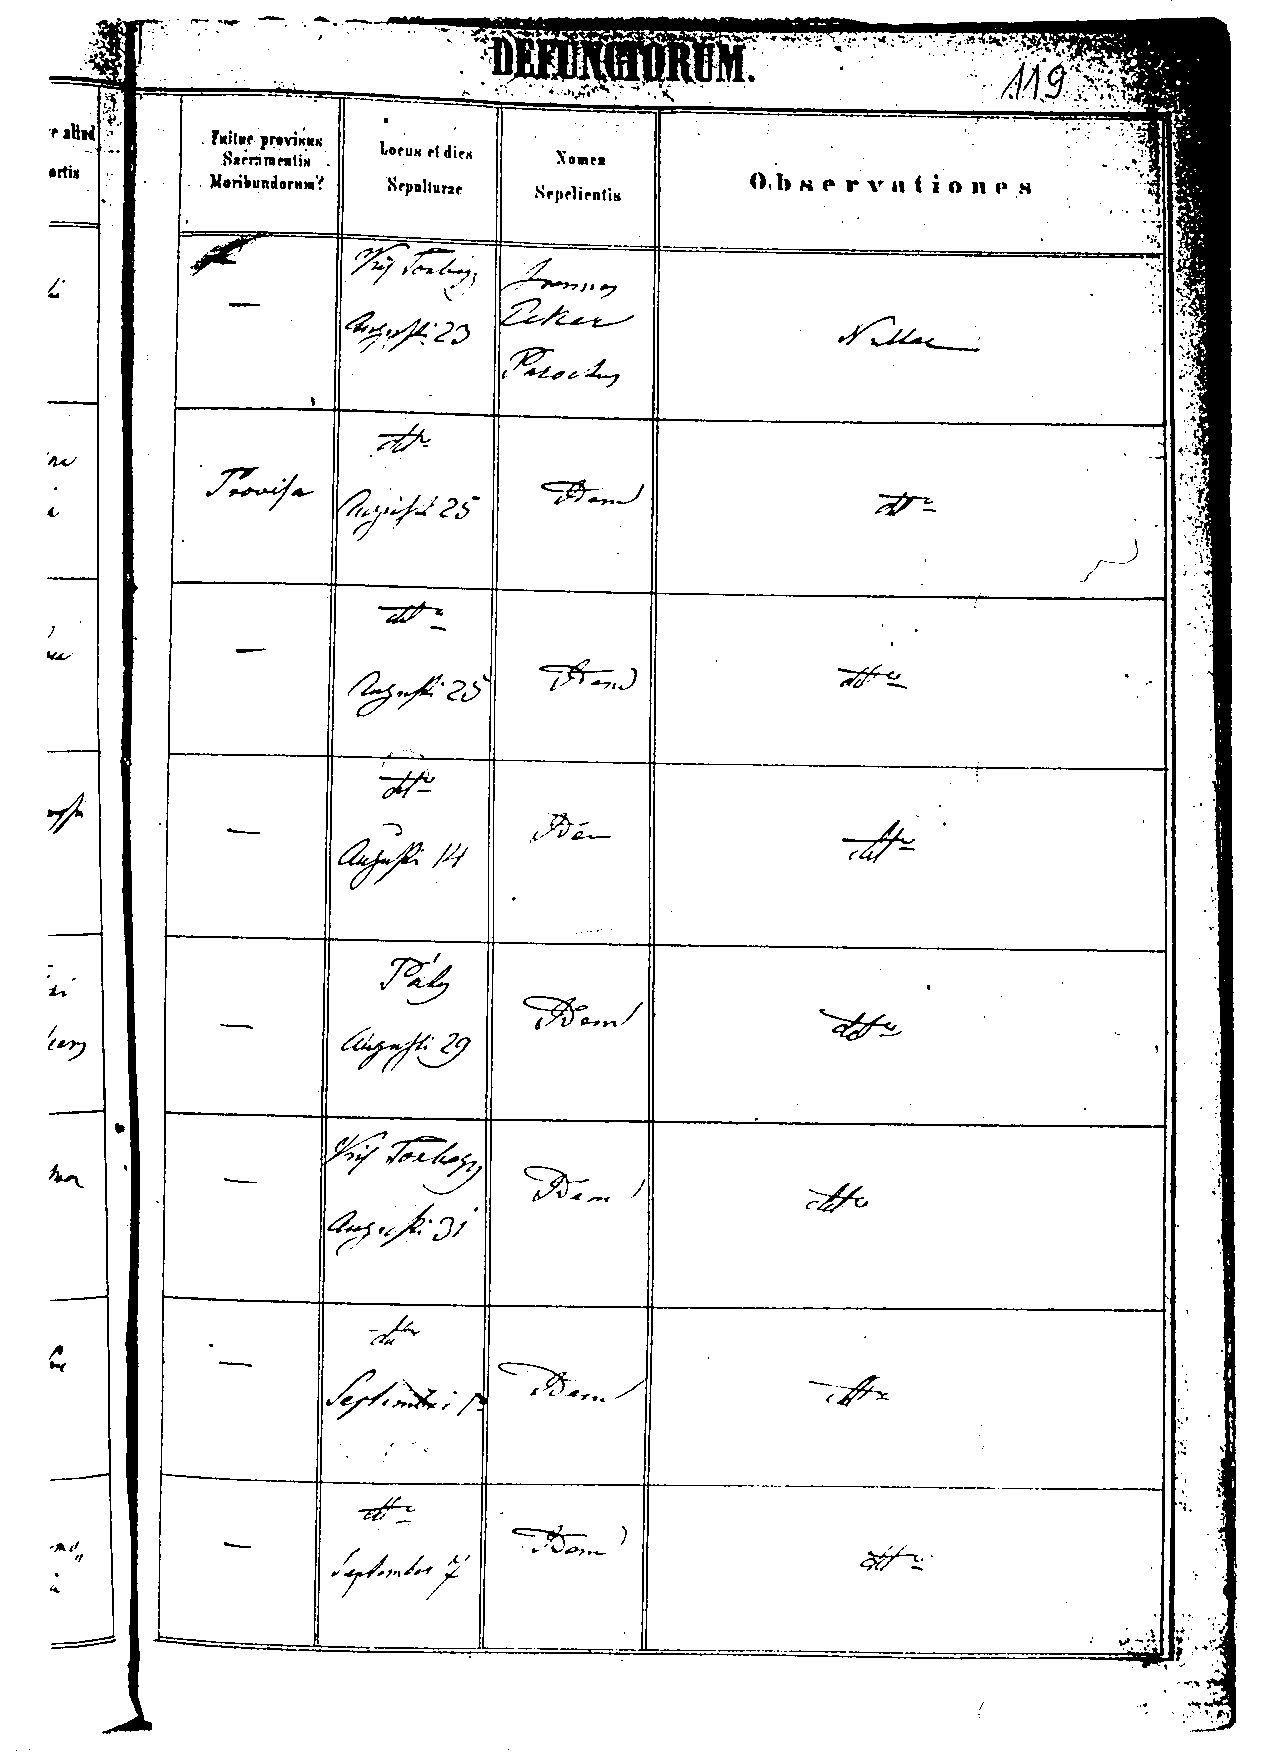 DEFUNCTORUM.
119
Fuitne provisus
Sacramentis
Moribundorum?
Locus et dies
Sepulturae
Nomen
Sepelientis
Observationes
ortis
Torbagy
Augusti 23
Joannes
Peker
Parochus
Nullae
—
dtto
Provisa
Augusti 25
Idem
dtto
dtto
—
Augusti 25
Idem
dtto
dtto
—
Augusti 14
Idem
dtto
Páty
—
Augusti 29
Idem
dtto
Torbagy
—
Augusti 31
Idem
dtto
dtto
—
Septembri
Idem
dtto
dtto
—
September 7
Idem
dtto